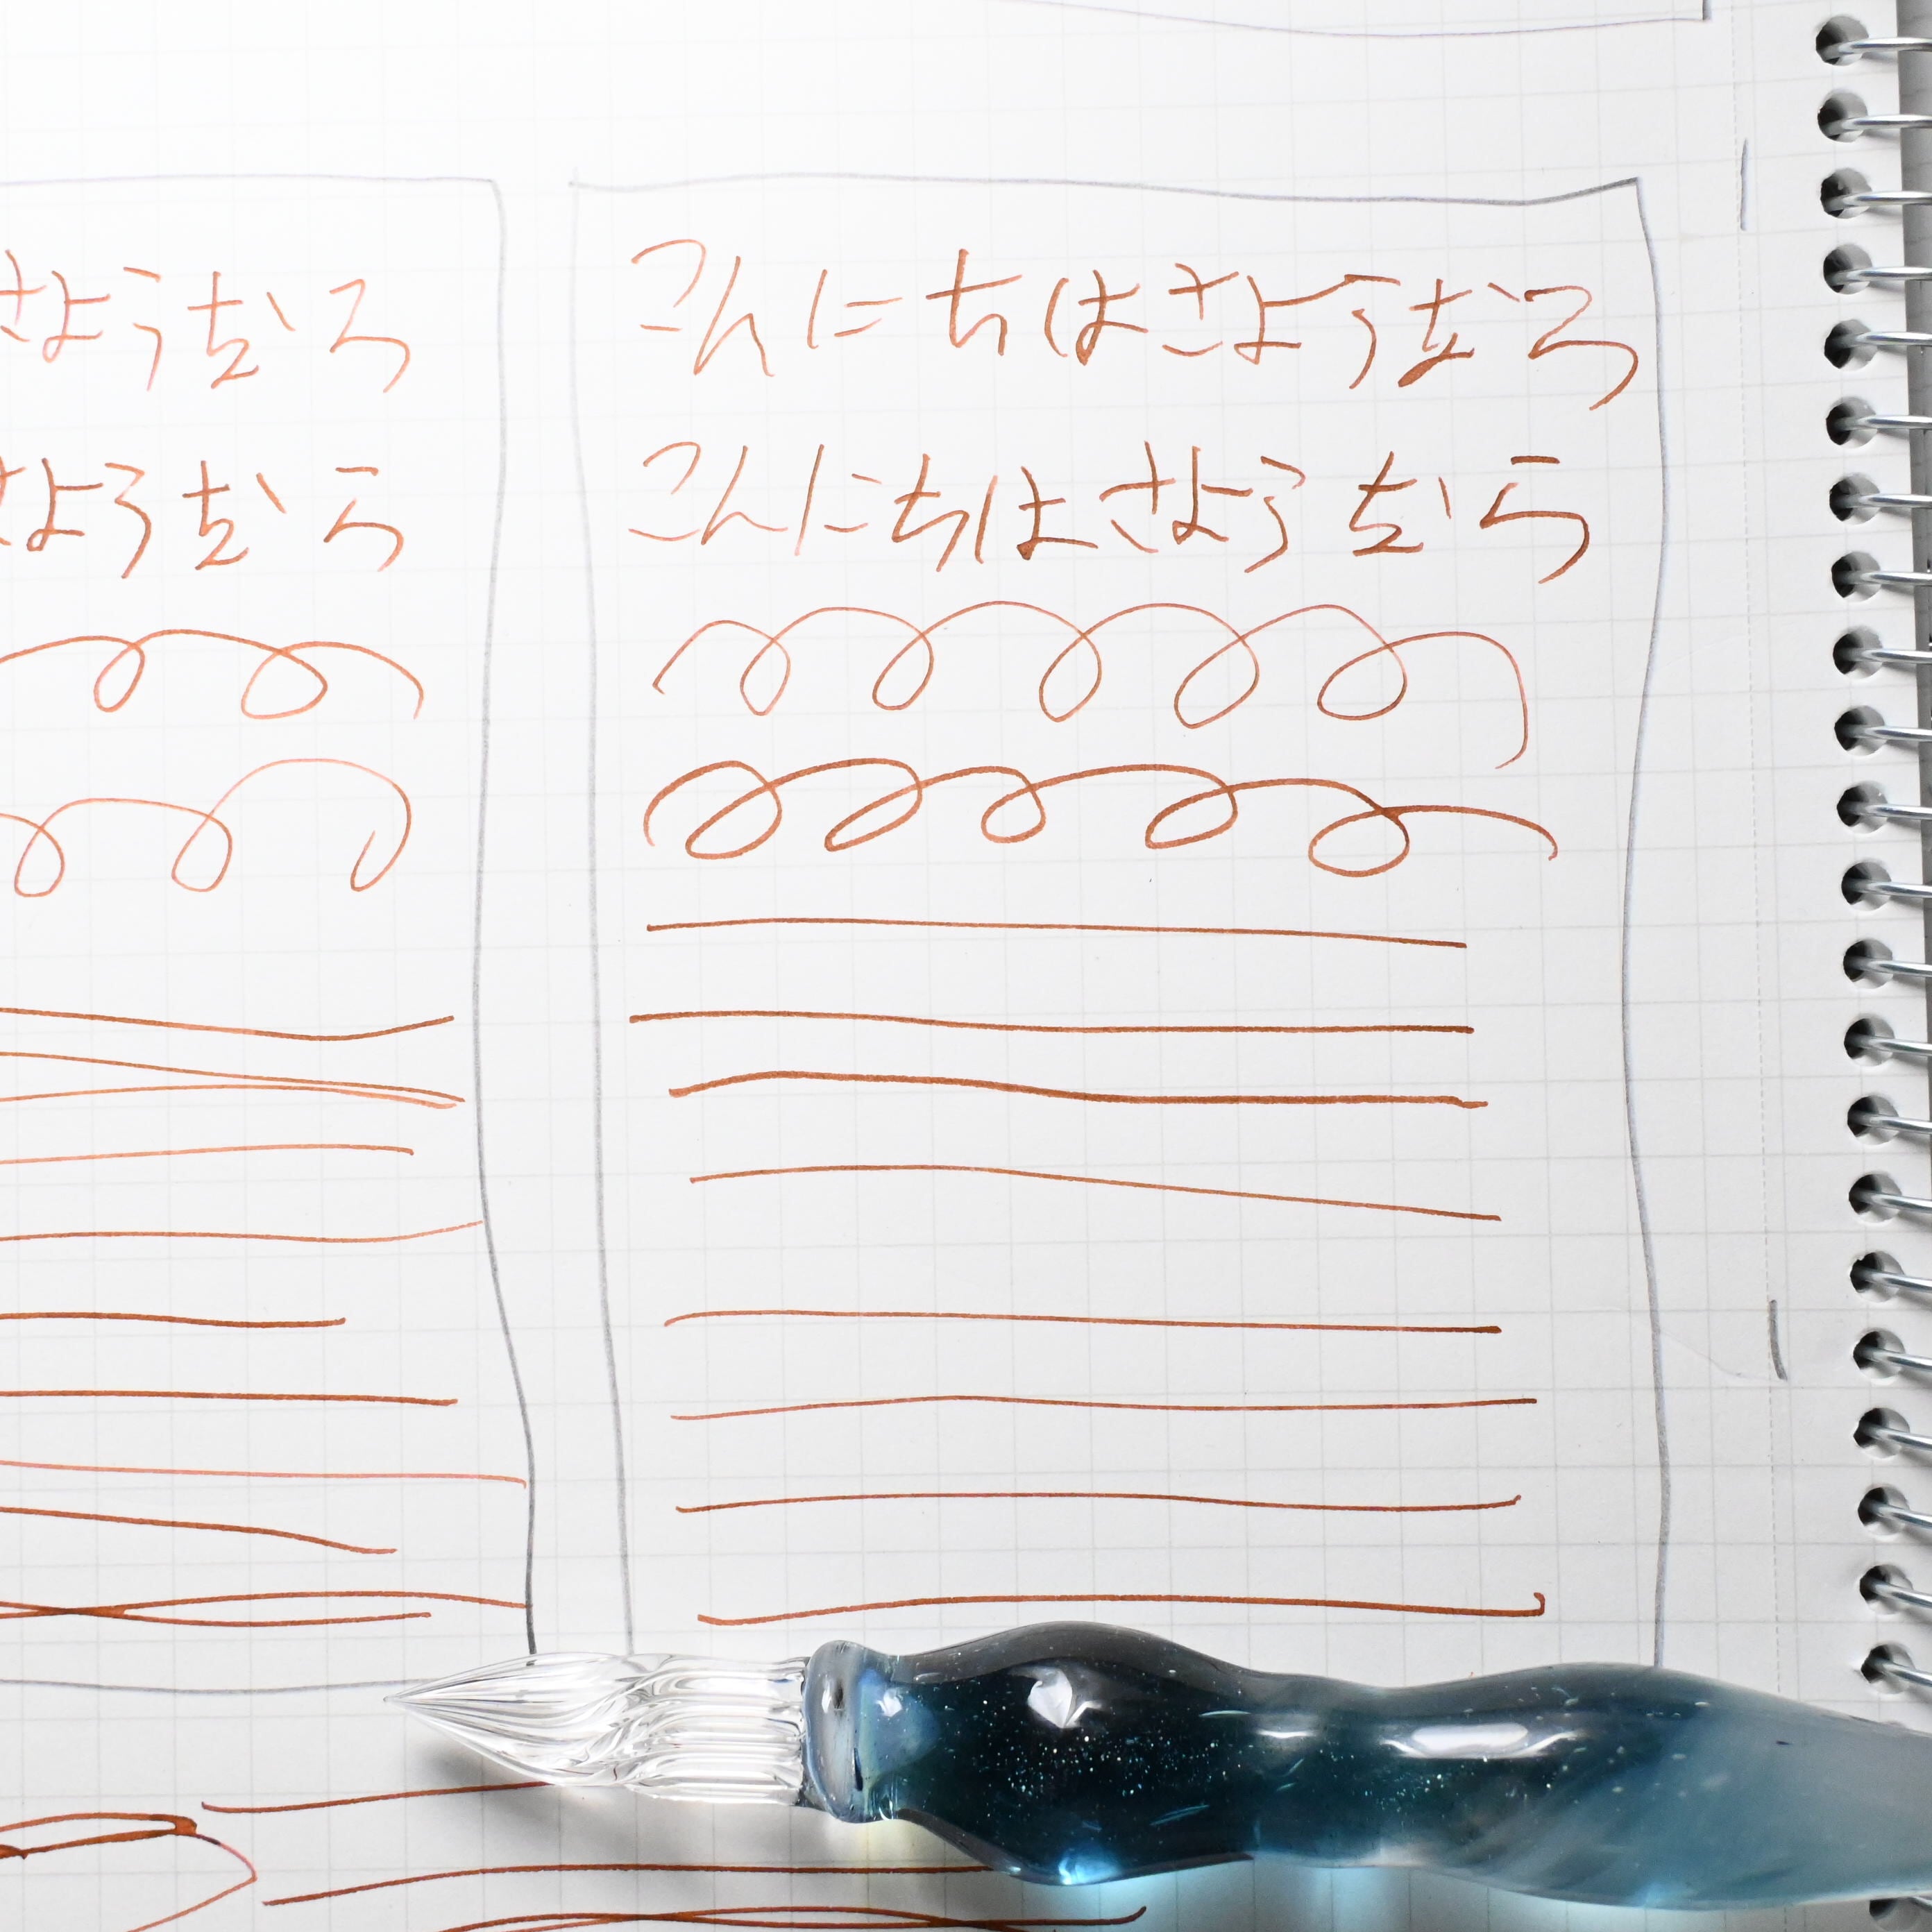 さようなら
さようなら
こんにちはさようなら
こんにちはさようなら